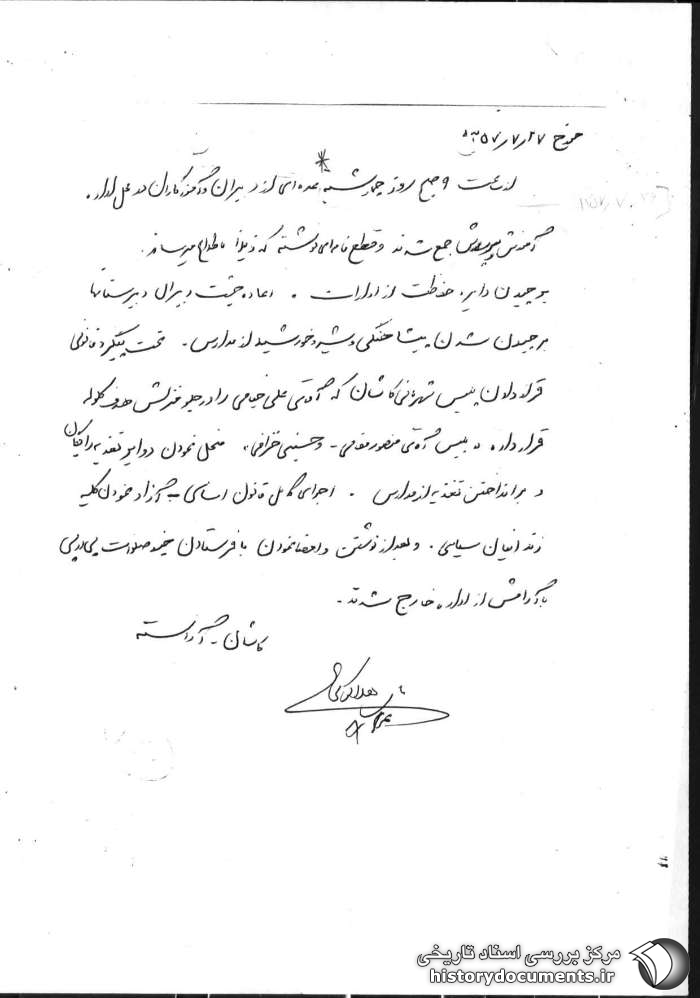 مورخ ۱۷ر۷ر۱۳۵۷
از ساعت ۹ صبح روز چهارشنبه عده‌ای از دبیران و آموزگاران در محل اداره
آموزش و پرورش جمع شدند و قطع نامه‌ای نوشته که ذیلاً باطلاع میرساند.
برچیدن دایره حفاظت از ادارات . اعاده حیثیت دبیران دبیرستانها
برچیدن شدن پیشاهنگی و شیر و خورشید از مدارس . تحت پیگرد قانونی
قرار دادن پلیس شهربانی کاشان که آقای علی را در جلو منزلش هدف گلوله
قرار داده و پلیس آقای منصور - و حسینی منحل نمودن دوایر تغذیه رایگان
و برانداختن تغذیه از مدارس . اجرای کامل قانون اساسی - آزاد نمودن کلیه
زندانیان سیاسی . و بعد از نوشتن و امضا نمودن با فرستادن صلوات پی در پی
با آرامش از اداره خارج شدند .
کاشان - آراسته
مرکز بررسی اسناد تاریخی
historydocuments.ir